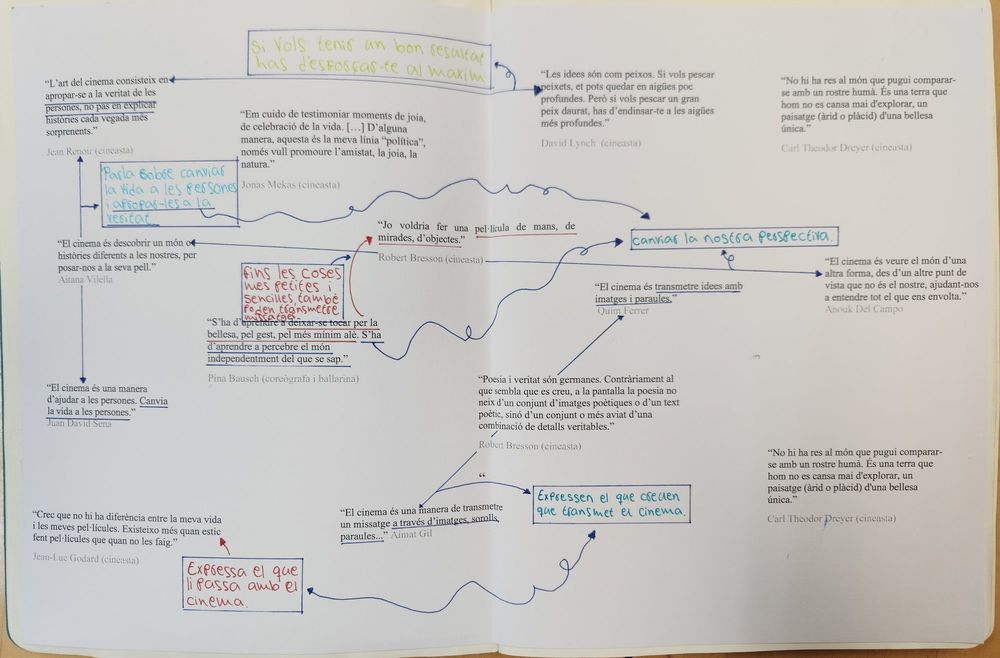 Si vols tenir un bon resultat
has d'esforçar-te al maxim
“L’art del cinema consisteix en
apropar-se a la veritat de les
persones, no pas en explicar
històries cada vegada més
sorprenents.”
Jean Renoir (cineasta)
“Em cuido de testimoniar moments de joia,
de celebració de la vida. […] D’alguna
manera, aquesta és la meva línia “política”,
només vull promoure l’amistat, la joia, la
natura.”
Jonas Mekas (cineasta)
“Les idees són com peixos. Si vols pescar
peixets, et pots quedar en aigües poc
profundes. Però si vols pescar un gran
peix daurat, has d’endinsar-te a les aigües
més profundes.”
David Lynch (cineasta)
“No hi ha res al món que pugui comparar-
se amb un rostre humà. És una terra que
hom no es cansa mai d'explorar, un
paisatge (àrid o plàcid) d'una bellesa
única.”
Carl Theodor Dreyer (cineasta)
Parla sobre canviar
la vida a les persones
i apropar-les a la
veritat.
“El cinema és descobrir un món o
històries diferents a les nostres, per
posar-nos a la seva pell.”
Aitana Vilella
“Jo voldria fer una pel·lícula de mans, de
mirades, d’objectes.”
Robert Bresson (cineasta)
canviar la nostra perspectiva.
fins les coses
mes petites i
sencilles, també
poden transmetre
missatge.
“El cinema és transmetre idees amb
imatges i paraules.”
Quim Ferrer
“El cinema és veure el món d’una
altra forma, des d’un altre punt de
vista que no és el nostre, ajudant-nos
a entendre tot el que ens envolta.”
Anouk Del Campo
“S’ha d’aprendre a deixar-se tocar per la
bellesa, pel gest, pel més mínim alè. S’ha
d’aprendre a percebre el món
independentment del que se sap.”
Pina Bausch (coreògrafa i ballarina)
“El cinema és una manera
d’ajudar a les persones. Canvia
la vida a les persones.”
Juan David Sena
“Poesia i veritat són germanes. Contràriament al
que sembla que es creu, a la pantalla la poesia no
neix d’un conjunt d’imatges poètiques o d’un text
poètic, sinó d’un conjunt o més aviat d’una
combinació de detalls veritables.”
Robert Bresson (cineasta)
“No hi ha res al món que pugui comparar-
se amb un rostre humà. És una terra que
hom no es cansa mai d'explorar, un
paisatge (àrid o plàcid) d'una bellesa
única.”
Carl Theodor Dreyer (cineasta)
“
“El cinema és una manera de transmetre
un missatge a través d’imatges, sorolls,
paraules...” Aimat Gil
Expressen el que creuen
que transmet el cinema.
“Crec que no hi ha diferència entre la meva vida
i les meves pel·lícules. Existeixo més quan estic
fent pel·lícules que quan no les faig.”
Jean-Luc Godard (cineasta)
Expressa el que
li passa amb el
cinema.